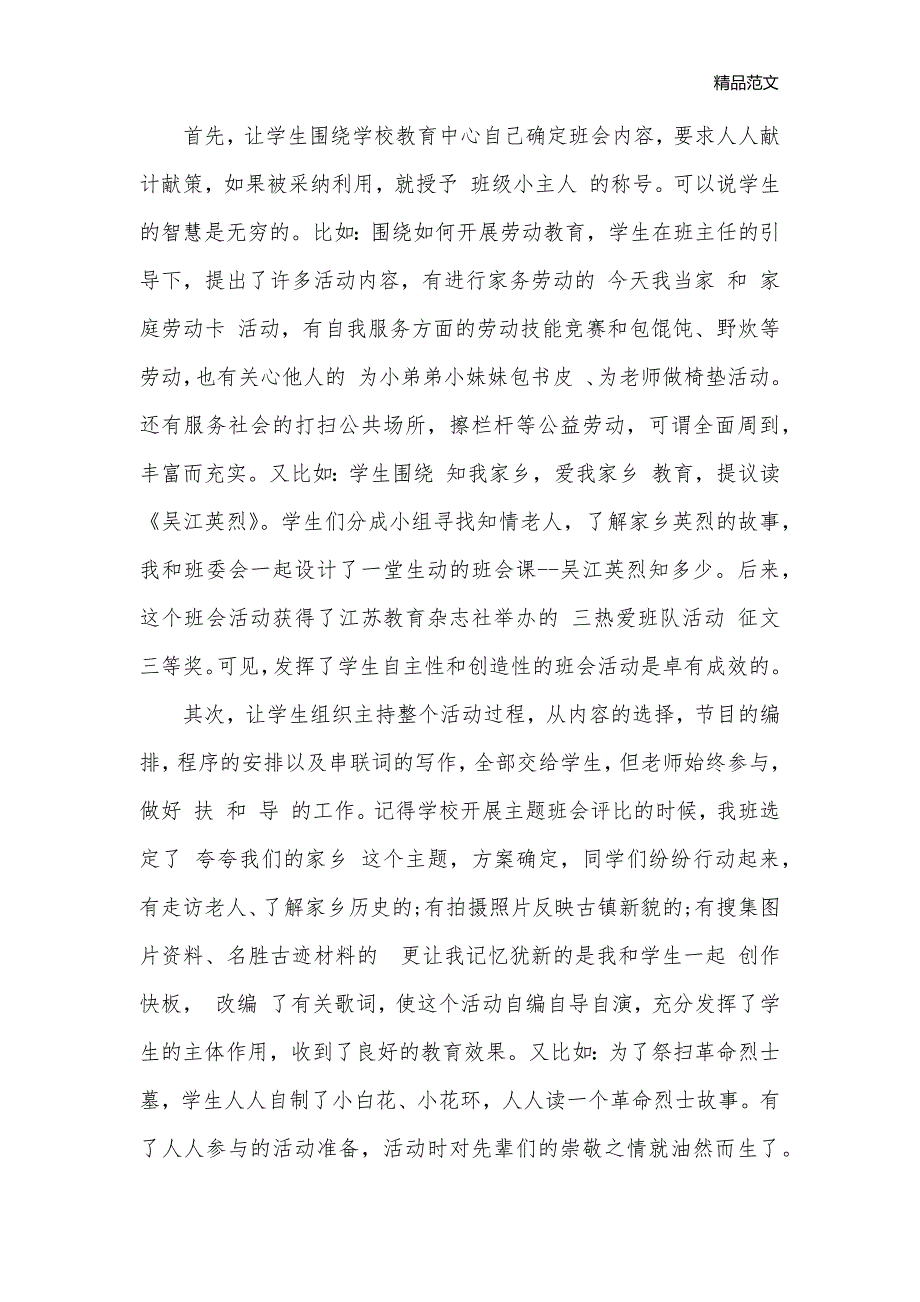 精品范文
首先，让学生围绕学校教育中心自己确定班会内容，要求人人献
计献策，如果被采纳利用，就授予 班级小主人 的称号。可以说学生
的智慧是无穷的。比如：围绕如何开展劳动教育，学生在班主任的引
导下，提出了许多活动内容，有进行家务劳动的 今天我当家 和 家
庭劳动卡 活动，有自我服务方面的劳动技能竞赛和包馄饨、野炊等
劳动，也有关心他人的 为小弟弟小妹妹包书皮 、为老师做椅垫活动。
还有服务社会的打扫公共场所，擦栏杆等公益劳动，可谓全面周到，
丰富而充实。又比如：学生围绕 知我家乡，爱我家乡 教育，提议读
《吴江英烈》。学生们分成小组寻找知情老人，了解家乡英烈的故事，
我和班委会一起设计了一堂生动的班会课--吴江英烈知多少。后来，
这个班会活动获得了江苏教育杂志社举办的 三热爱班队活动 征文
三等奖。可见，发挥了学生自主性和创造性的班会活动是卓有成效的。
其次，让学生组织主持整个活动过程，从内容的选择，节目的编
排，程序的安排以及串联词的写作，全部交给学生，但老师始终参与，
做好 扶 和 导 的工作。记得学校开展主题班会评比的时候，我班选
定了 夸夸我们的家乡 这个主题，方案确定，同学们纷纷行动起来，
有走访老人、了解家乡历史的;有拍摄照片反映古镇新貌的;有搜集图
片资料、名胜古迹材料的  更让我记忆犹新的是我和学生一起 创作
快板， 改编 了有关歌词，使这个活动自编自导自演，充分发挥了学
生的主体作用，收到了良好的教育效果。又比如：为了祭扫革命烈士
墓，学生人人自制了小白花、小花环，人人读一个革命烈士故事。有
了人人参与的活动准备，活动时对先辈们的崇敬之情就油然而生了。